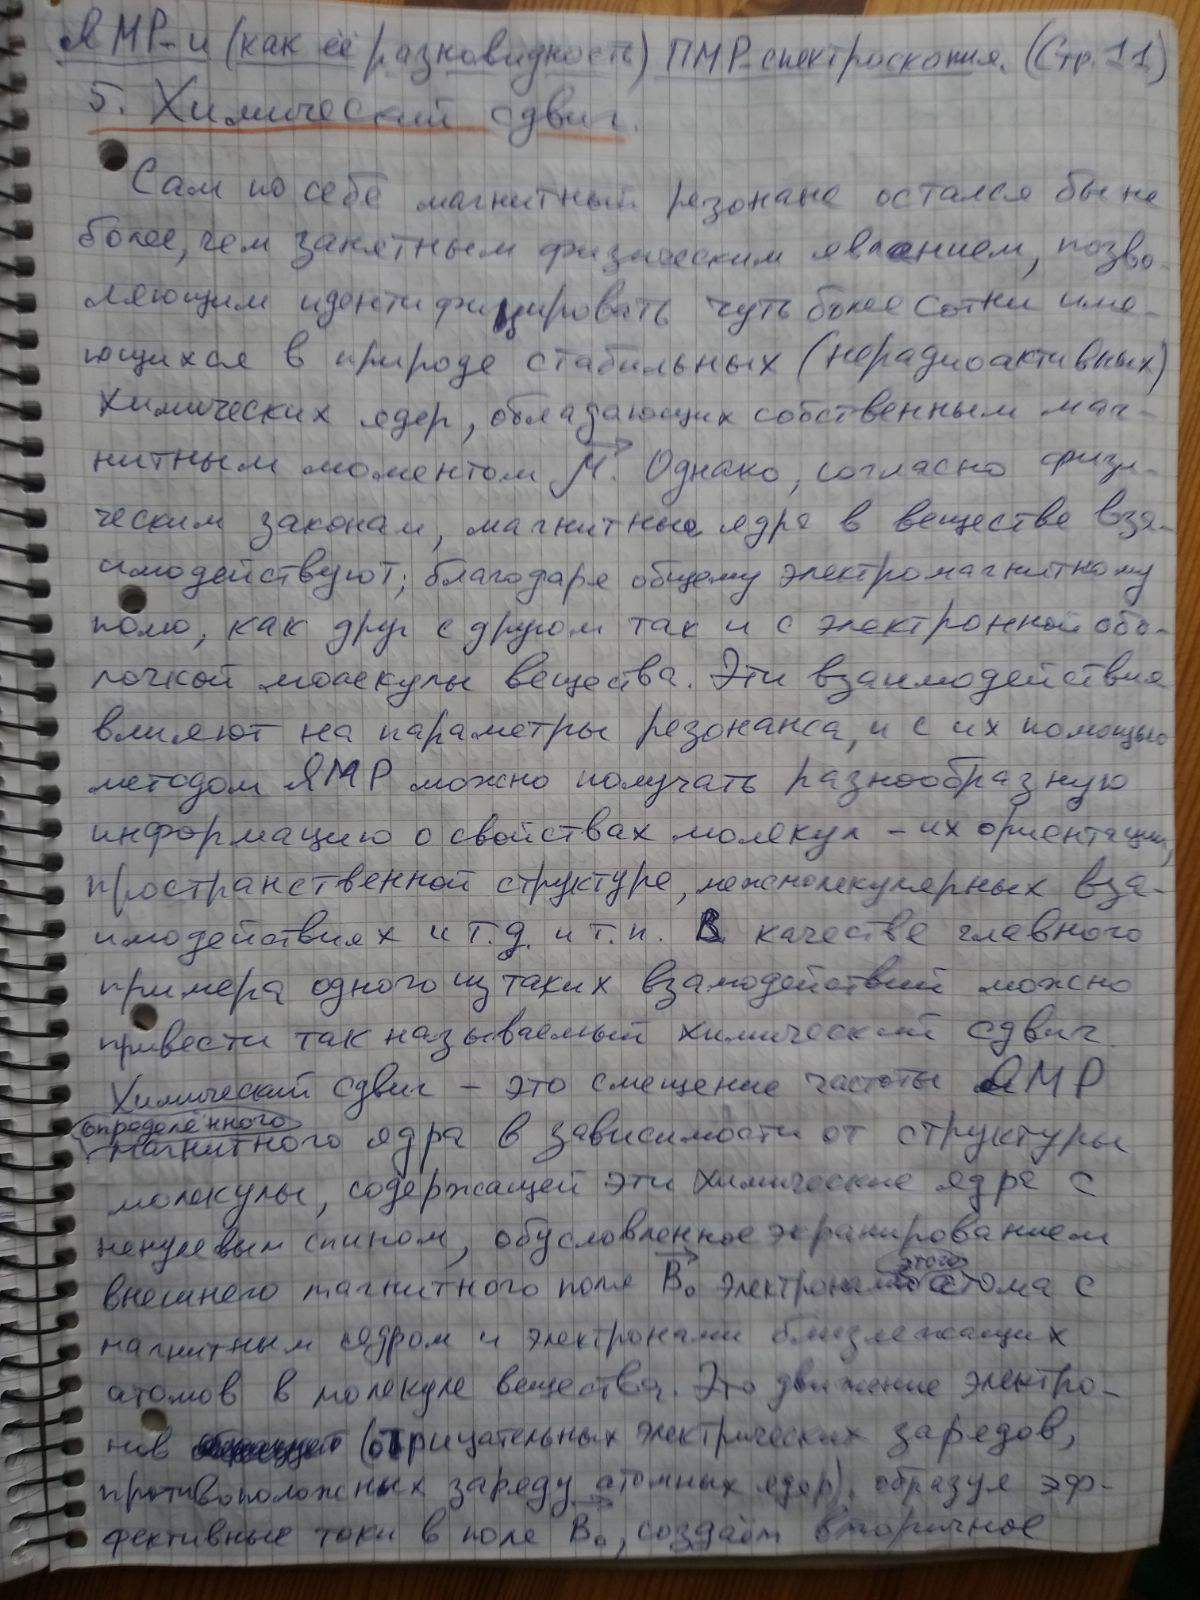 ЯМР-и (как её разновидность) ПМР-спектроскопия. (Стр.11)
5. Химический сдвиг.
Сам по себе магнитный резонанс остался бы не
более, чем занятным физическим явлением, позво-
ляющим идентифицировать чуть более сотни име-
ющихся в природе стабильных (нерадиоактивных)
химических ядер, обладающих собственным маг-
нитным моментом M. Однако, согласно физи-
ческим законам, магнитные ядра в веществе вза-
имодействуют, благодаря общему электромагнитному
полю, как друг с другом так и с электронной обо-
лочкой молекулы вещества. Эти взаимодействия
влияют на параметры резонанса, и с их помощью
методом ЯМР можно получать разнообразную
информацию о свойствах молекул - их ориентации,
пространственной структуре, межмолекулярных вза-
имодействиях и т.д. и т.п. В качестве главного
примера одного из таких взамодействий можно
привести так называемый химический сдвиг.
Химический сдвиг - это смещение частоты ЯМР
определённого
магнитного ядра в зависимости от структуры
молекулы, содержащей эти химические ядра с
ненулевым спином, обусловленное экранированием
внешнего магнитного поля B₀ электронами этого атома с
магнитным ядром и электронами близлежащих
атомов в молекуле вещества. Это движение электро-
нов (отрицательных электрических зарядов,
противоположных заряду атомных ядер), образуя эф-
фективные токи в поле B₀, создаёт вторичное